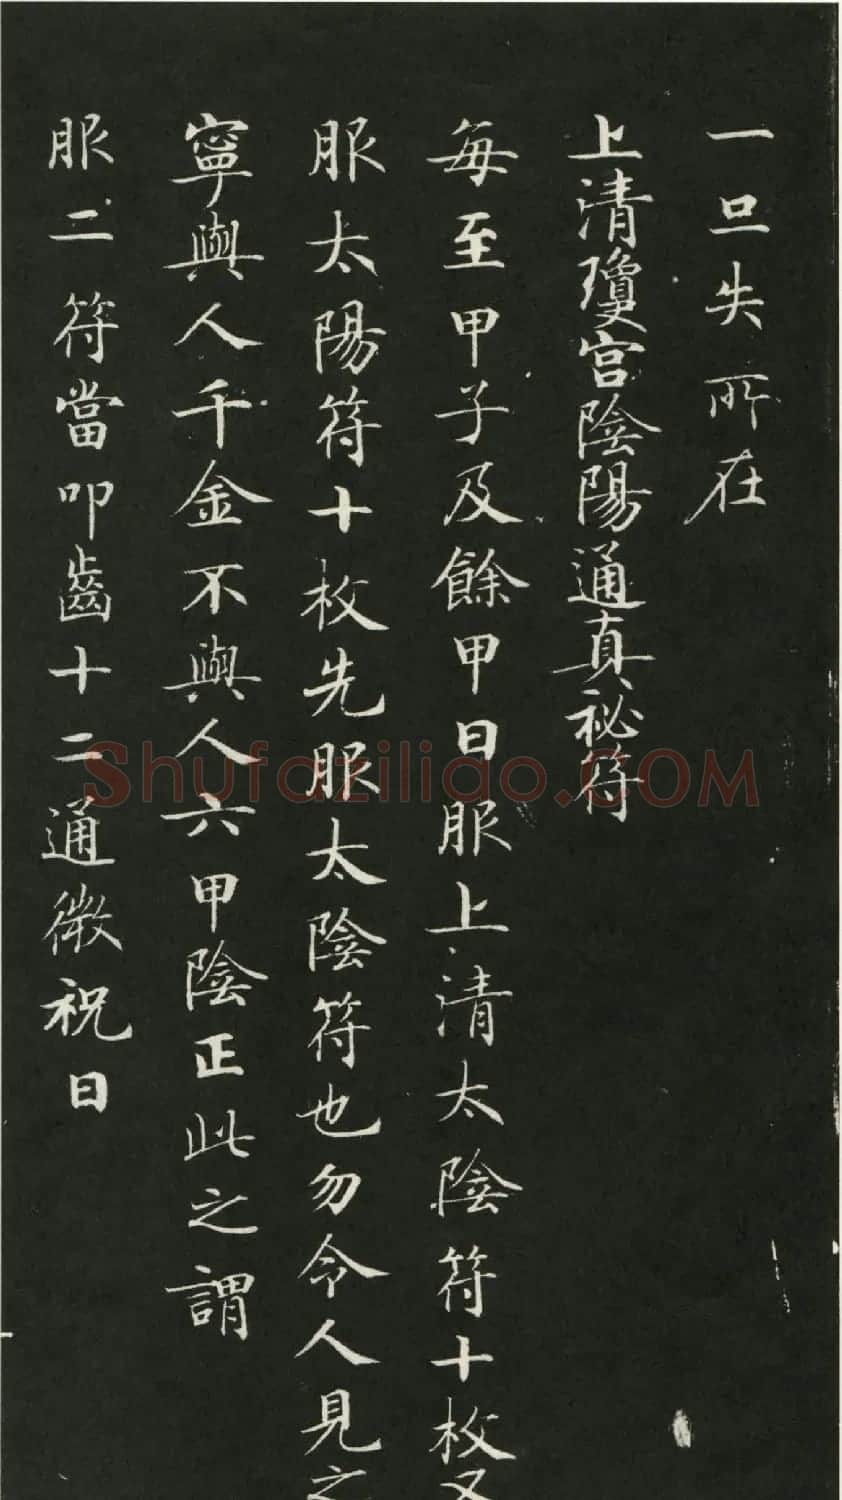 一旦失所在
上清瓊宮陰陽通真祕符
每至甲子及餘甲日服上清太陰符十枚又
服太陽符十枚先服太陰符也勿令人見之
寧與人千金不與人六甲陰正此之謂
服二符當叩齒十二通微祝曰
Shufaziliao.COM